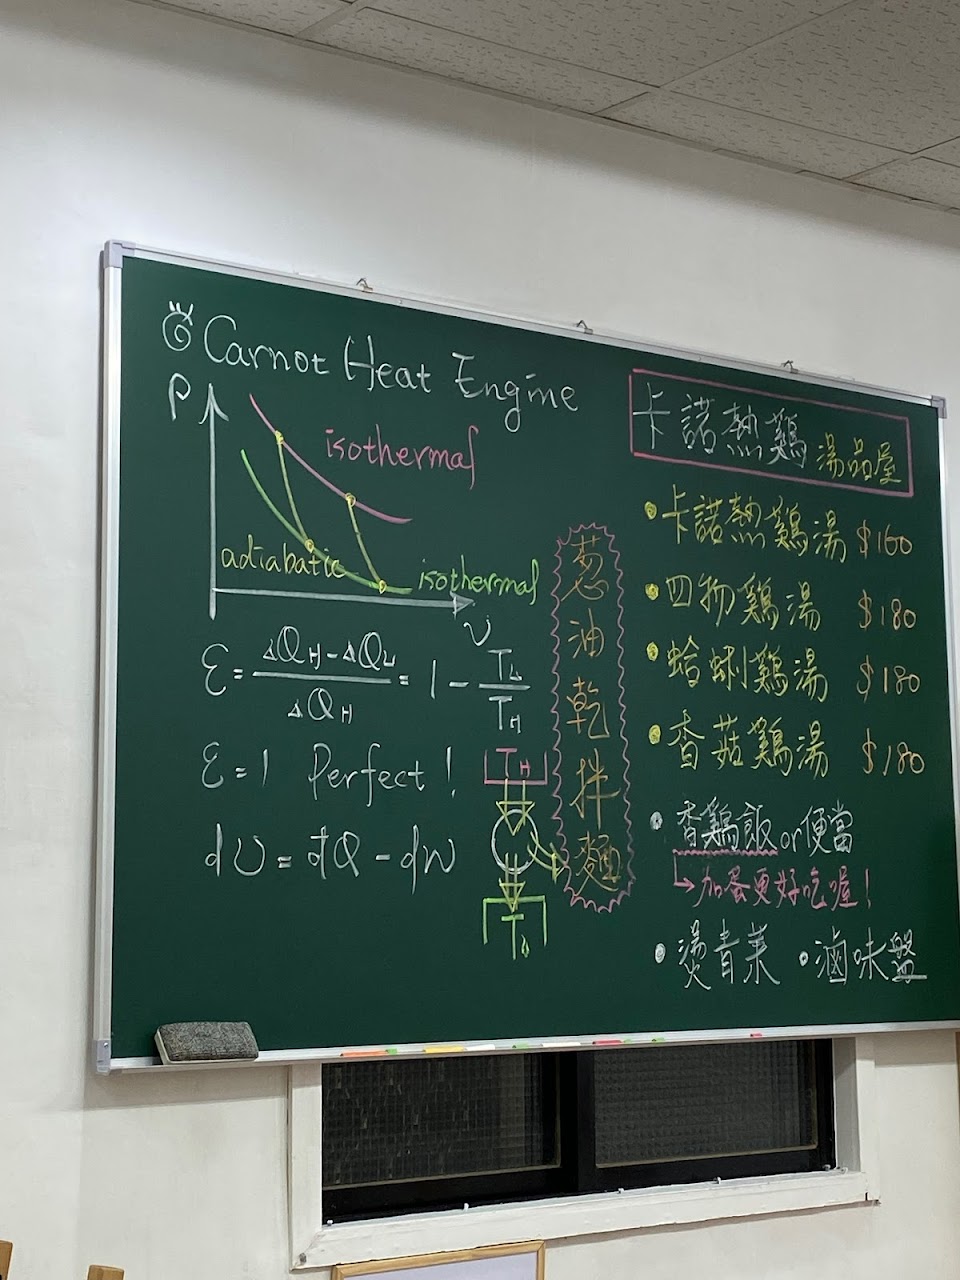 Carnot Heat Engine
P
isothermal
adiabatic
isothermal
v
ε = ΔQH - ΔQL / ΔQH = 1 - TL / TH
ε = 1 Perfect !
dU = đQ - dW
TH
TL
蔥油乾拌麵
卡諾熱鷄湯品屋
•卡諾熱鷄湯 $160
•四物鷄湯 $180
•蛤蜊鷄湯 $180
•香菇鷄湯 $180
•香鷄飯or便當
→加蛋更好吃喔!
•燙青菜 •滷味盤